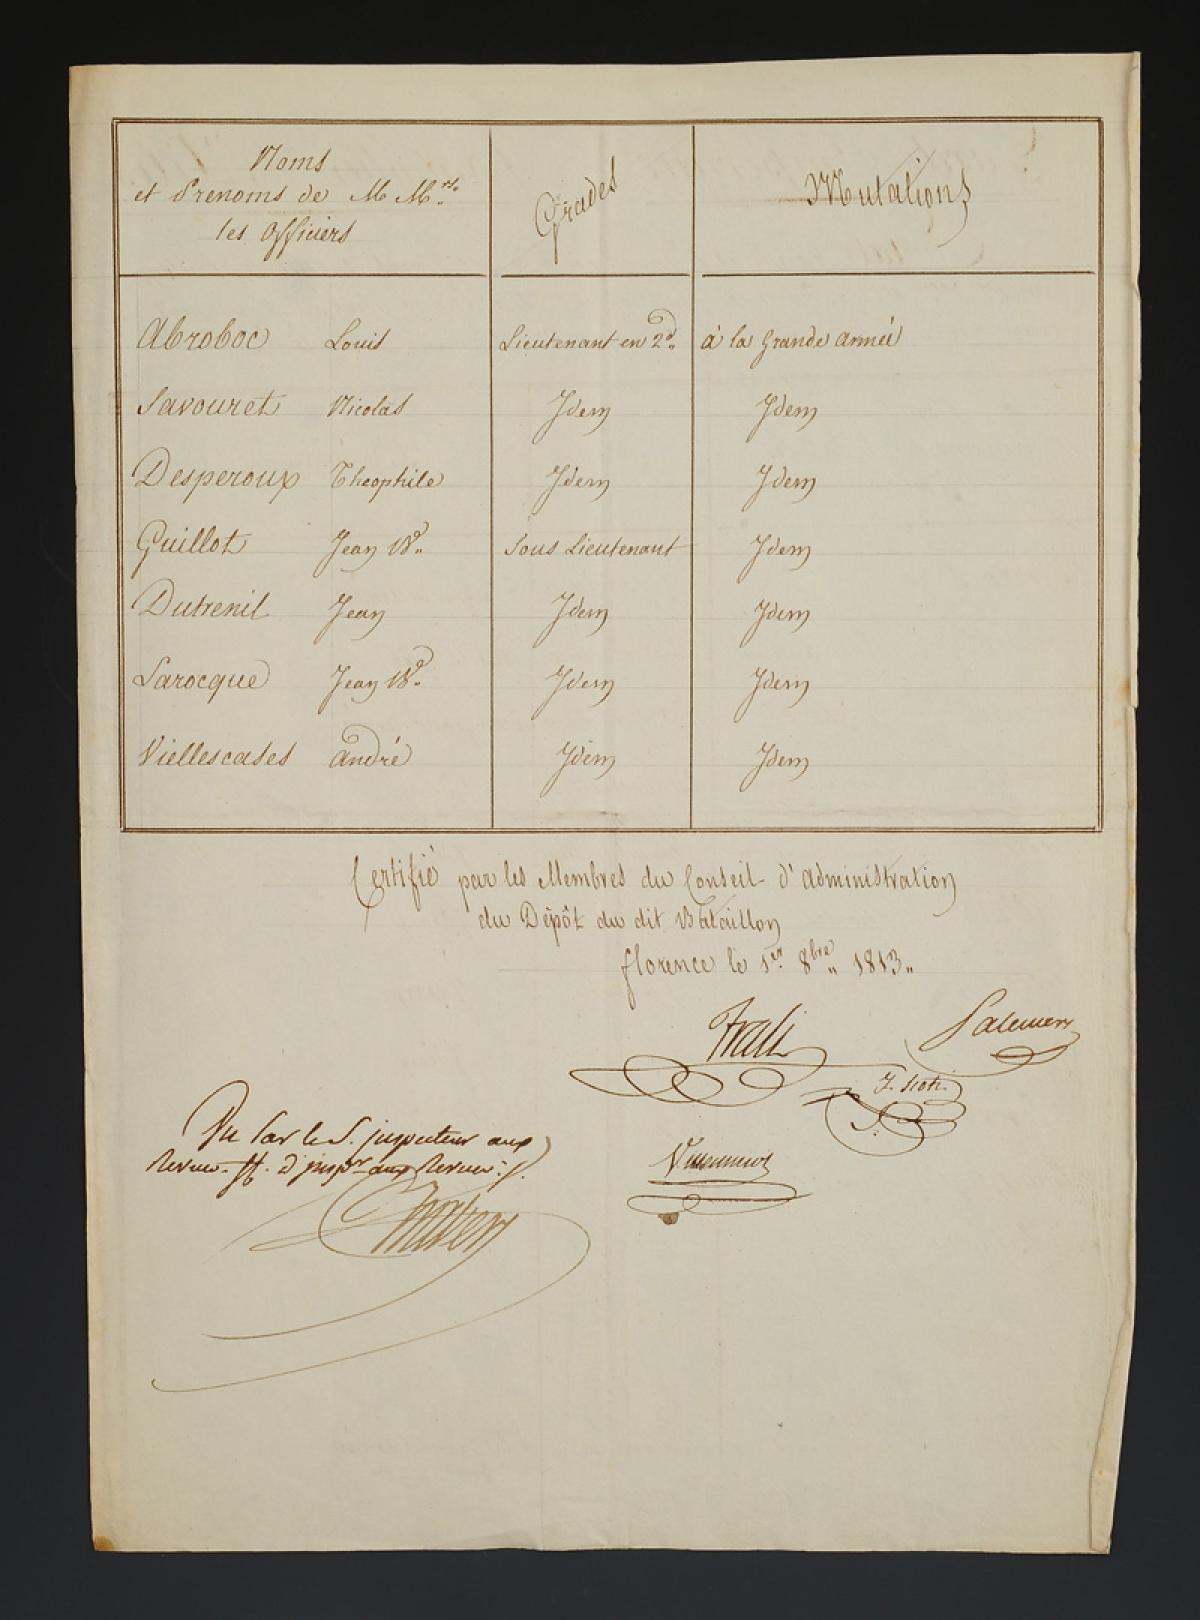 Noms
et Prenoms de M Mrs.
les Officiers
Grades
Mutations
Abroboc Louis Lieutenant en 2d. à la Grande Armée
Savouret Nicolas Idem Idem
Desperoux Theophile Idem Idem
Guillot Jean Bte. Sous Lieutenant Idem
Dutrenil Jean Idem Idem
Larocque Jean Bte. Idem Idem
Viellescases André Idem Idem
Certifié par les Membres du Conseil d'Administration
du Dépôt du dit Bataillon
florence le 1er. 8bre 1813
Vu Par le S. inspecteur aux
revues